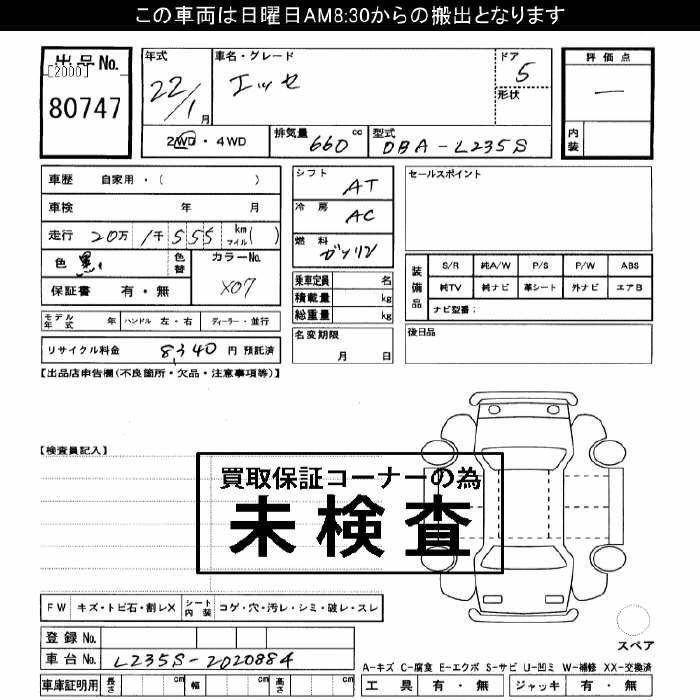 この車両は日曜日AM8:30からの搬出となります
出品No.
[2000]
80747
年式
22/1月
車名・グレード
エッセ
ドア
5
形状
評価点
―
内装
2WD・4WD
排気量 660 cc
型式 DBA-L235S
車歴 自家用・( )
車検 年 月
走行 20万 1千 5 5 5 km マイル ( )
色 黒
色替
カラーNo.
X07
保証書 有・無
シフト AT
冷房 AC
燃料 ガソリン
乗車定員 名
積載量 kg
総重量 kg
セールスポイント
装備品
S/R 純A/W P/S P/W ABS
純TV 純ナビ 革シート 外ナビ エアB
ナビ型番:
モデル年式 年 ハンドル 左・右 ディーラー・並行
リサイクル料金 8,340 円 預託済
名変期限
月 日
後日品
【出品店申告欄(不良箇所・欠品・注意事項等)】
【検査員記入】
買取保証コーナーの為
未検査
FW キズ・トビ石・割レX シート内装 コゲ・穴・汚レ・シミ・破レ・スレ
スペア
登録No.
車台No. L235S-2020884
A-キズ C-腐食 E-エクボ S-サビ U-凹ミ W-補修 XX-交換済
車庫証明用 長さ cm 幅 cm 高さ cm
工具 有・無 ジャッキ 有・無